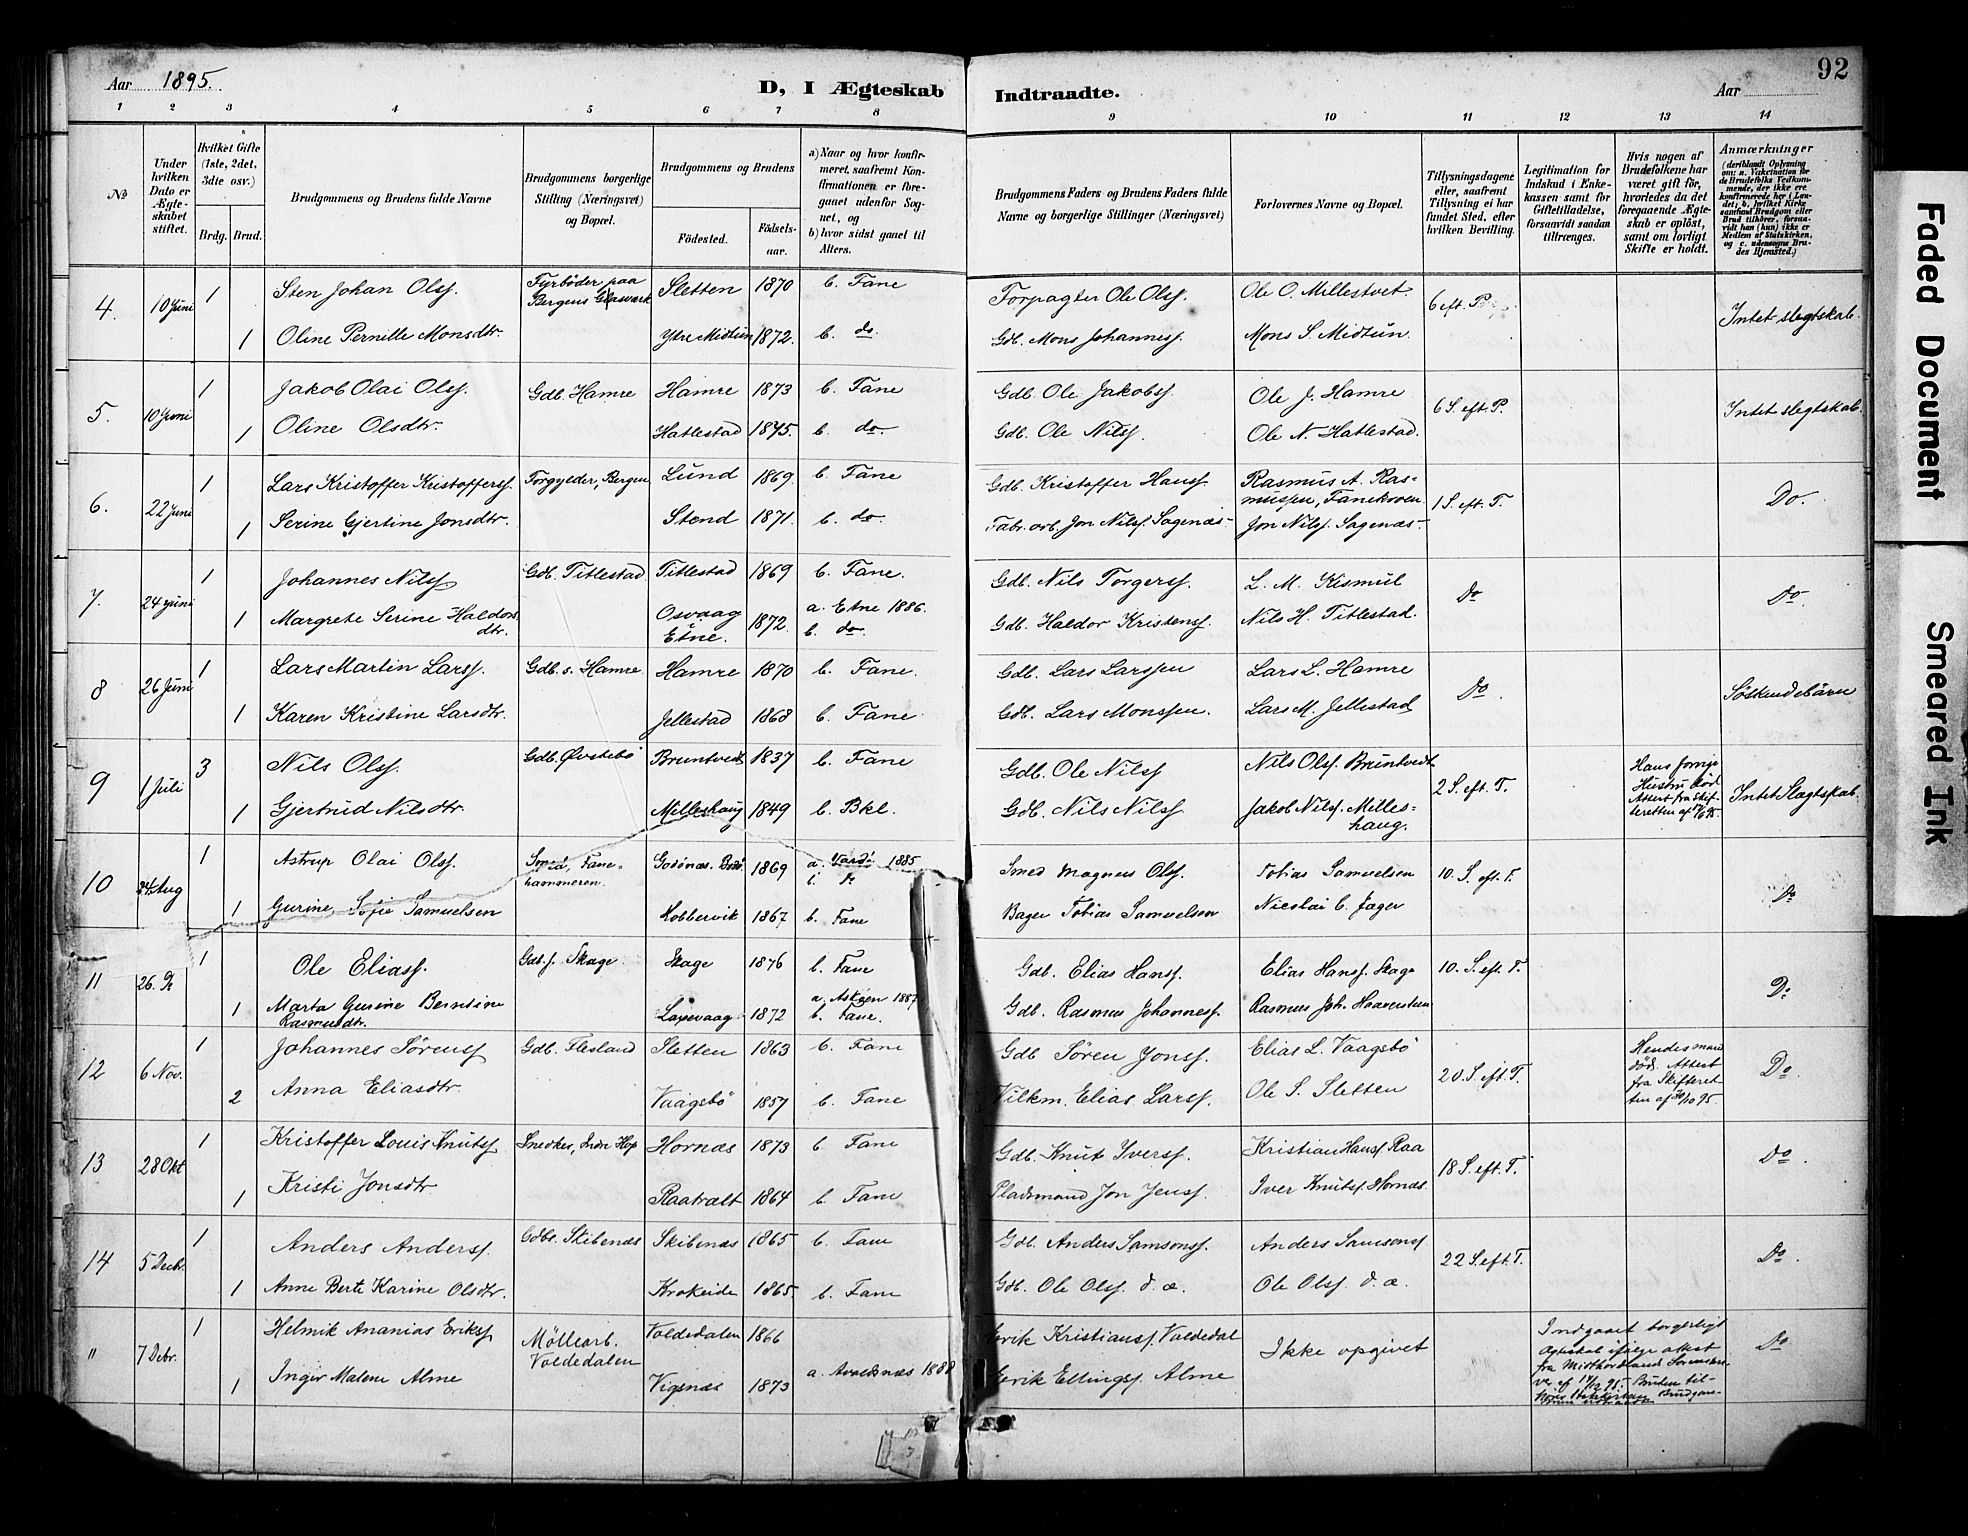 Aar 1895.
D, I Ægteskab Indtraadte.
Aar
92
1 2 3 4 5 6 7 8 9 10 11 12 13 14
No
Under hvilken Dato er Ægteskabet stiftet.
Hvilket Gifte (1ste, 2det, 3die osv.)
Brdg. Brud.
Brudgommens og Brudens fulde Navne
Brudgommens borgerlige Stilling (Næringsvei) og Bopæl.
Brudgommens og Brudens
Fødested. Fødselsaar.
a) Naar og hvor konfirmeret, saafremt Konfirmationen er foregaaet udenfor Sognet, og
b) hvor sidst gaaet til Alters.
Brudgommens Faders og Brudens Faders fulde Navne og borgerlige Stillinger (Næringsvei)
Forlovernes Navne og Bopæl.
Tillysningsdagene eller, saafremt Tillysning ei har fundet Sted, efter hvilken Bevilling.
Legitimation for Indskud i Enkekassen samt for Giftetilladelse, forsaavidt saadan tiltrænges.
Hvis nogen af Brudefolkene har været gift før, hvorledes da det foregaaende Ægteskab er opløst, samt om lovligt Skifte er holdt.
Anmærkninger (deriblandt Oplysning om: a. Vakcination for de Brudefolks Vedkommende, der ikke ere konfirmerede her i Landet; b. hvilket Kirkesamfund Brudgom eller Brud tilhører, forsaavidt han (hun) ikke er Medlem af Statskirken, og c. udensogns Brudes Hjemsted.)
4. 10 Juni 1 Sten Johan Olss. Fyrbøder paa Bergens Glasværk Sletten 1870 b. Fane Forpagter Ole Olss. Ole O. Millestvet. 6 eft. P. Intet slegtskab.
1 Oline Pernille Monsdtr. Ytre Midtun 1872. b. do. Gdb. Mons Johanness. Mons S. Midtun.
5. 10 Juni 1 Jakob Olai Olss. Gdb. Hamre Hamre 1873 b. Fane Gdb. Ole Jakobss. Ole J. Hamre 6 S. eft. P. Intet slegtskab.
1 Oline Olsdtr. Hatlestad 1875. b. do. Gdb. Ole Nilss. Ole N. Hatlestad.
6. 22 Juni 1 Lars Kristoffer Kristofferss. Forgylder, Bergen Lund 1869. b. Fane Gdb. Kristoffer Hanss. Rasmus A. Rasmussen, Fanekroen 1 S. eft. T. Do.
1 Serine Gjertine Jonsdtr. Stend 1871. b. do. Fabr. arb. Jon Nilss. Sagenæs Jon Nilss. Sagenæs
7. 24 Juni 1 Johannes Nilss. Gdb. Titlestad Titlestad 1869 b. Fane. Gdb. Nils Torgerss. L. M. Kismul Do Do.
1 Margrete Serine Haldorsdtr. Osvaag Etne. 1872. a. Etne 1886. b. do. Gdb. Haldor Kristenss. Nils H. Titlestad.
8 26 Juni 1 Lars Martin Larss. Gdb. s. Hamre Hamre 1870 b. Fane. Gdb. Lars Larssen Lars L. Hamre Do. Söskendebörn
1 Karen Kristine Larsdtr. Jellestad 1868 b. Fane. Gdb. Lars Monssen. Lars M. Jellestad
9 1 Juli 3 Nils Olss. Gdb. Øvstebö Bruntvedt 1837 b. Fane Gdb. Ole Nilss. Nils Olss. Bruntvedt 2 S. eft. T. Hans forrige Hustru död Attest fra Skifteretten af 95. Intet Slægtskab.
1 Gjertrud Nilsdtr. Milleshaug 1849 b. Bkl. Gdb. Nils Nilss. Jakob Nilss. Milleshaug.
10 24 Aug 1 Astrup Olai Olss. Smed, Fanehammeren. Godönæs. Bodö 1869 a. Vardö 1885 b. Do Smed Magnus Olss. Tobias Samuelsen 10. S. eft. T. Do
1 Gurine Sofie Samuelsen Kobbervik 1867 b. Fane Bager Tobias Samuelsen Nicolai C. Jæger
11 26. 1 Ole Eliass. Gdb. s. Skage Skage 1876 b. Fane Gdb. Elias Hanss. Elias Hanss. Skage 10. S. eft. T. Do
1 Marta Gurine Berntine Rasmusdtr. Laxevaag 1872 a. Asköen 1887 b. Fane. Gdb. Rasmus Johanness. Rasmus Joh.
12 6 Nov. 1 Johannes Sørenss. Gdb. Flesland Sletten 1863 b. Fane Gdb Sören Jonss. Elias L. Vaagsbö 20. S. eft. T. Hendes mand död. Attest fra Skifteretten af 30/10 95. Do
2 Anna Eliasdtr. Vaagsbö 1857 b. Fane Vilkm. Elias Larss. Ole S. Sletten
13 28 Okt 1 Kristoffer Louis Knutss. Snedker, Indre Hop Hornæs 1873 b Fane Gdb. Knut Iverss. Kristian Hanss. Raa 18 S. eft. T. Do.
1 Kristi Jonsdtr. Raatræet 1864 b Fane Pladsmand Jon Jenss. Iver Knutss. Hornæs.
14 5 Decbr. 1 Anders Anderss. Gdbr. Skibenæs Skibenæs 1865 b. Fane Gdb. Anders Samsonss. Anders Samsonss 22 S. eft. T. Do.
1 Anne Berte Karine Olsdtr. Krokeide 1865. b. Fane Gdb. Ole Olss. d. æ. Ole Olss. d. æ.
" 7 Debr. 1 Helmik Ananias Erikss. Möllearb. Valdedalen Valdedalen 1866 Erik Kristianss. Valdedal Ikke opgivet Indgaaet borgerligt Ægteskab ifølge attest fra Midthordlands Sorenskriver af 14/12 95. Bruden tilhører Brudgom- Do
1 Inger Malene Alme Vigsnæs 1873 a. Avaldsnæs 1888 Erik Ellingss. Alme
Faded Document
Smeared Ink